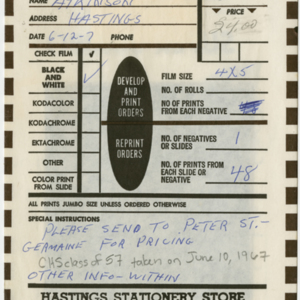 NAME ATKINSON
ADDRESS HASTINGS
PRICE
24.00
DATE 6-12-7 PHONE
CHECK FILM ✓
BLACK AND WHITE
KODACOLOR
KODACHROME
EKTACHROME
OTHER
COLOR PRINT FROM SLIDE
DEVELOP AND PRINT ORDERS
REPRINT ORDERS
FILM SIZE 4X5
NO. OF ROLLS
NO. OF PRINTS FROM EACH NEGATIVE
NO. OF NEGATIVES OR SLIDES 1
NO. OF PRINTS FROM EACH SLIDE OR NEGATIVE 48
ALL PRINTS JUMBO SIZE UNLESS ORDERED OTHERWISE
SPECIAL INSTRUCTIONS
PLEASE SEND TO PETER ST.-
GERMAINE FOR PRICING
CHS class of 57 taken on June 10, 1967
OTHER INFO - WITHIN
HASTINGS STATIONERY STORE